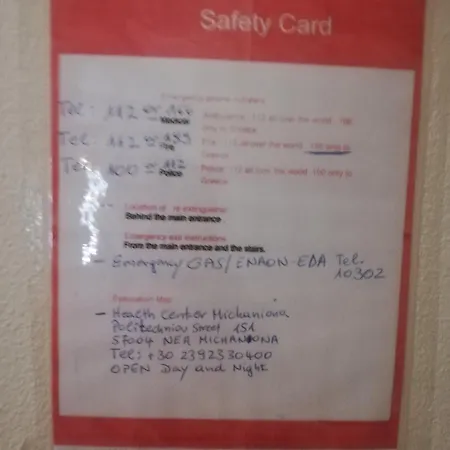 Safety Card
Emergency phone numbers
Tel: 112 or 166 Ambulance: 112 all over the world 166
Medical only in Greece
Tel: 112 or 199 Fire: 112 all over the world 199 only in
Fire Greece
Tel: 100 or 112 Police: 112 all over the world 100 only in
Police Greece
Location of fire extinguisher
Behind the main entrance
Emergency exit instructions
From the main entrance and the stairs.
- Emergency GAS/ENAON-EDA Tel.
10302
Evacuation Map
- Health Center Michaniona
Politechniou Street 151
57004 NEA MICHANIONA
Tel: +30 2392330400
OPEN Day and Night